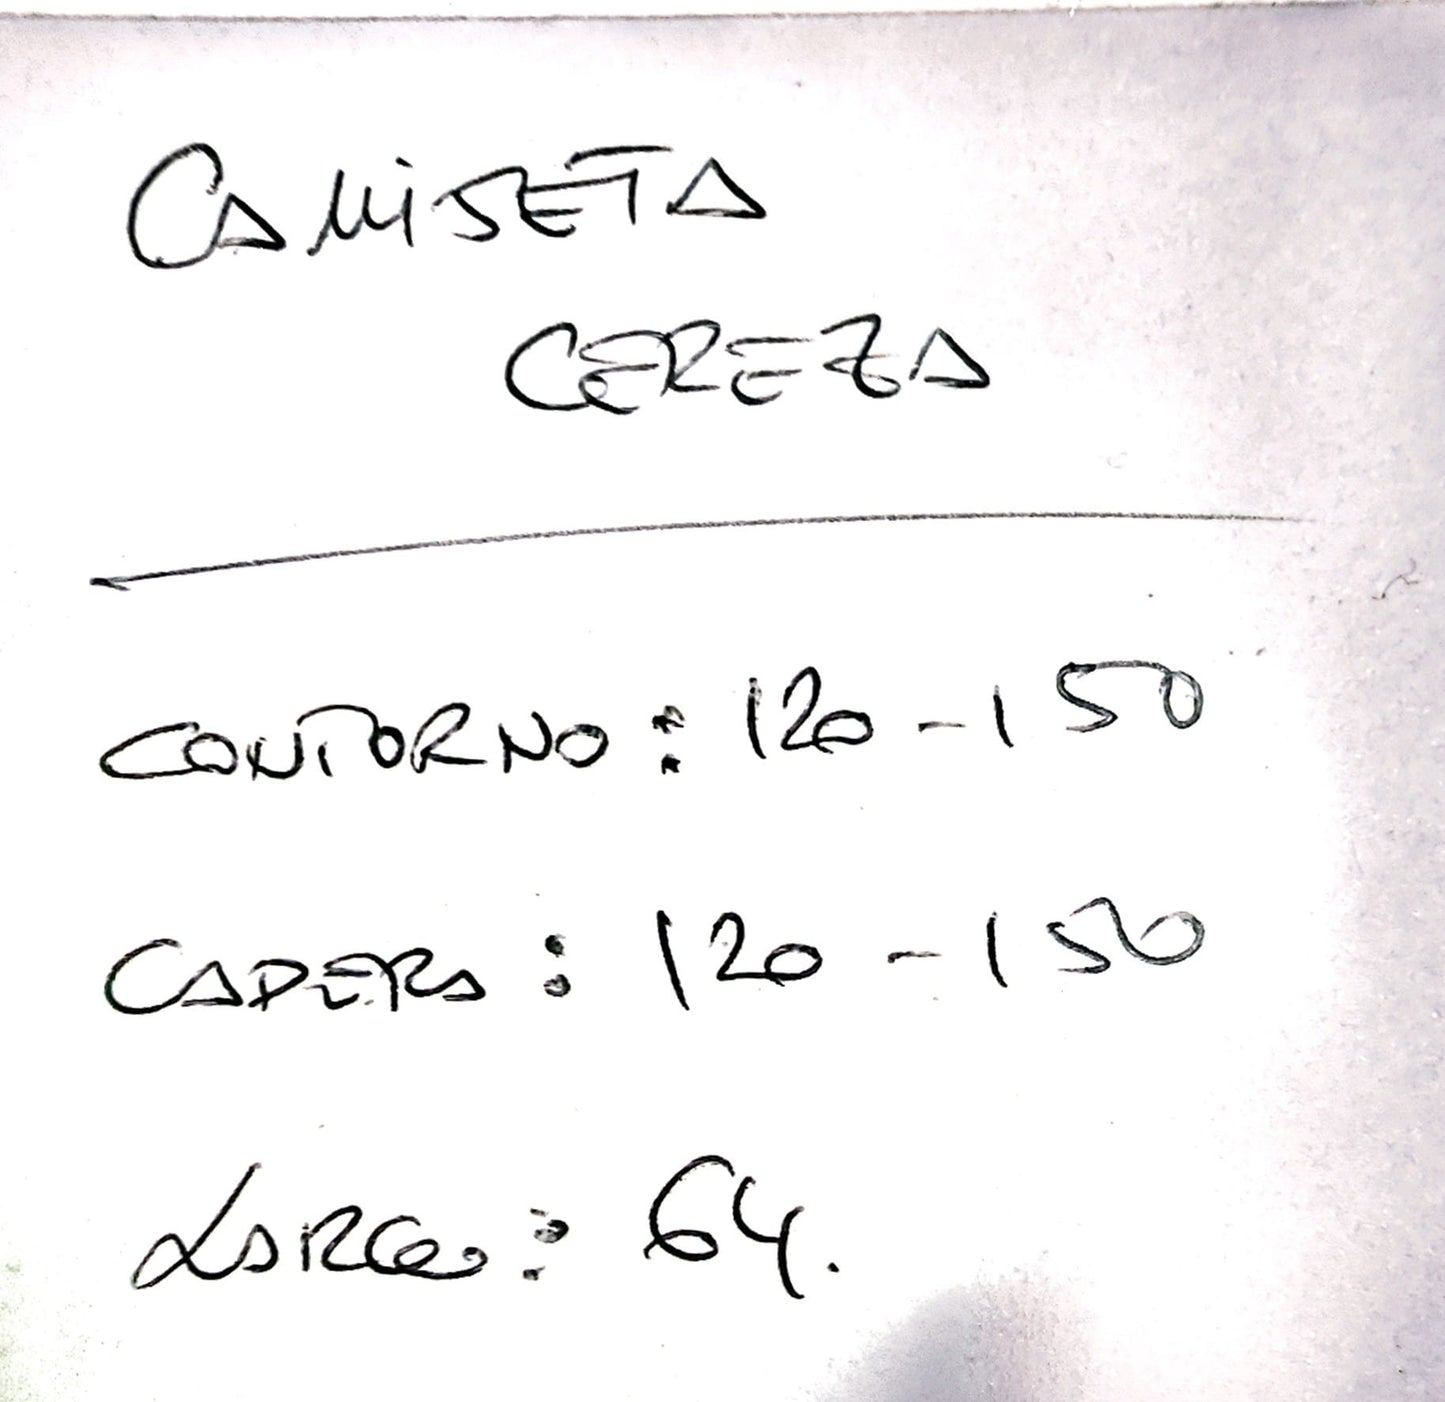 CAMISETA
CEREZA
CONTORNO: 120-150
CADERA: 120-150
LARGO: 64.